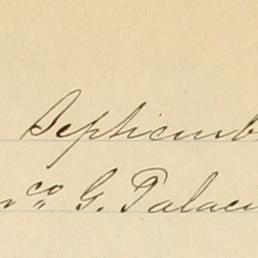 Septiemb
co G. Palaci